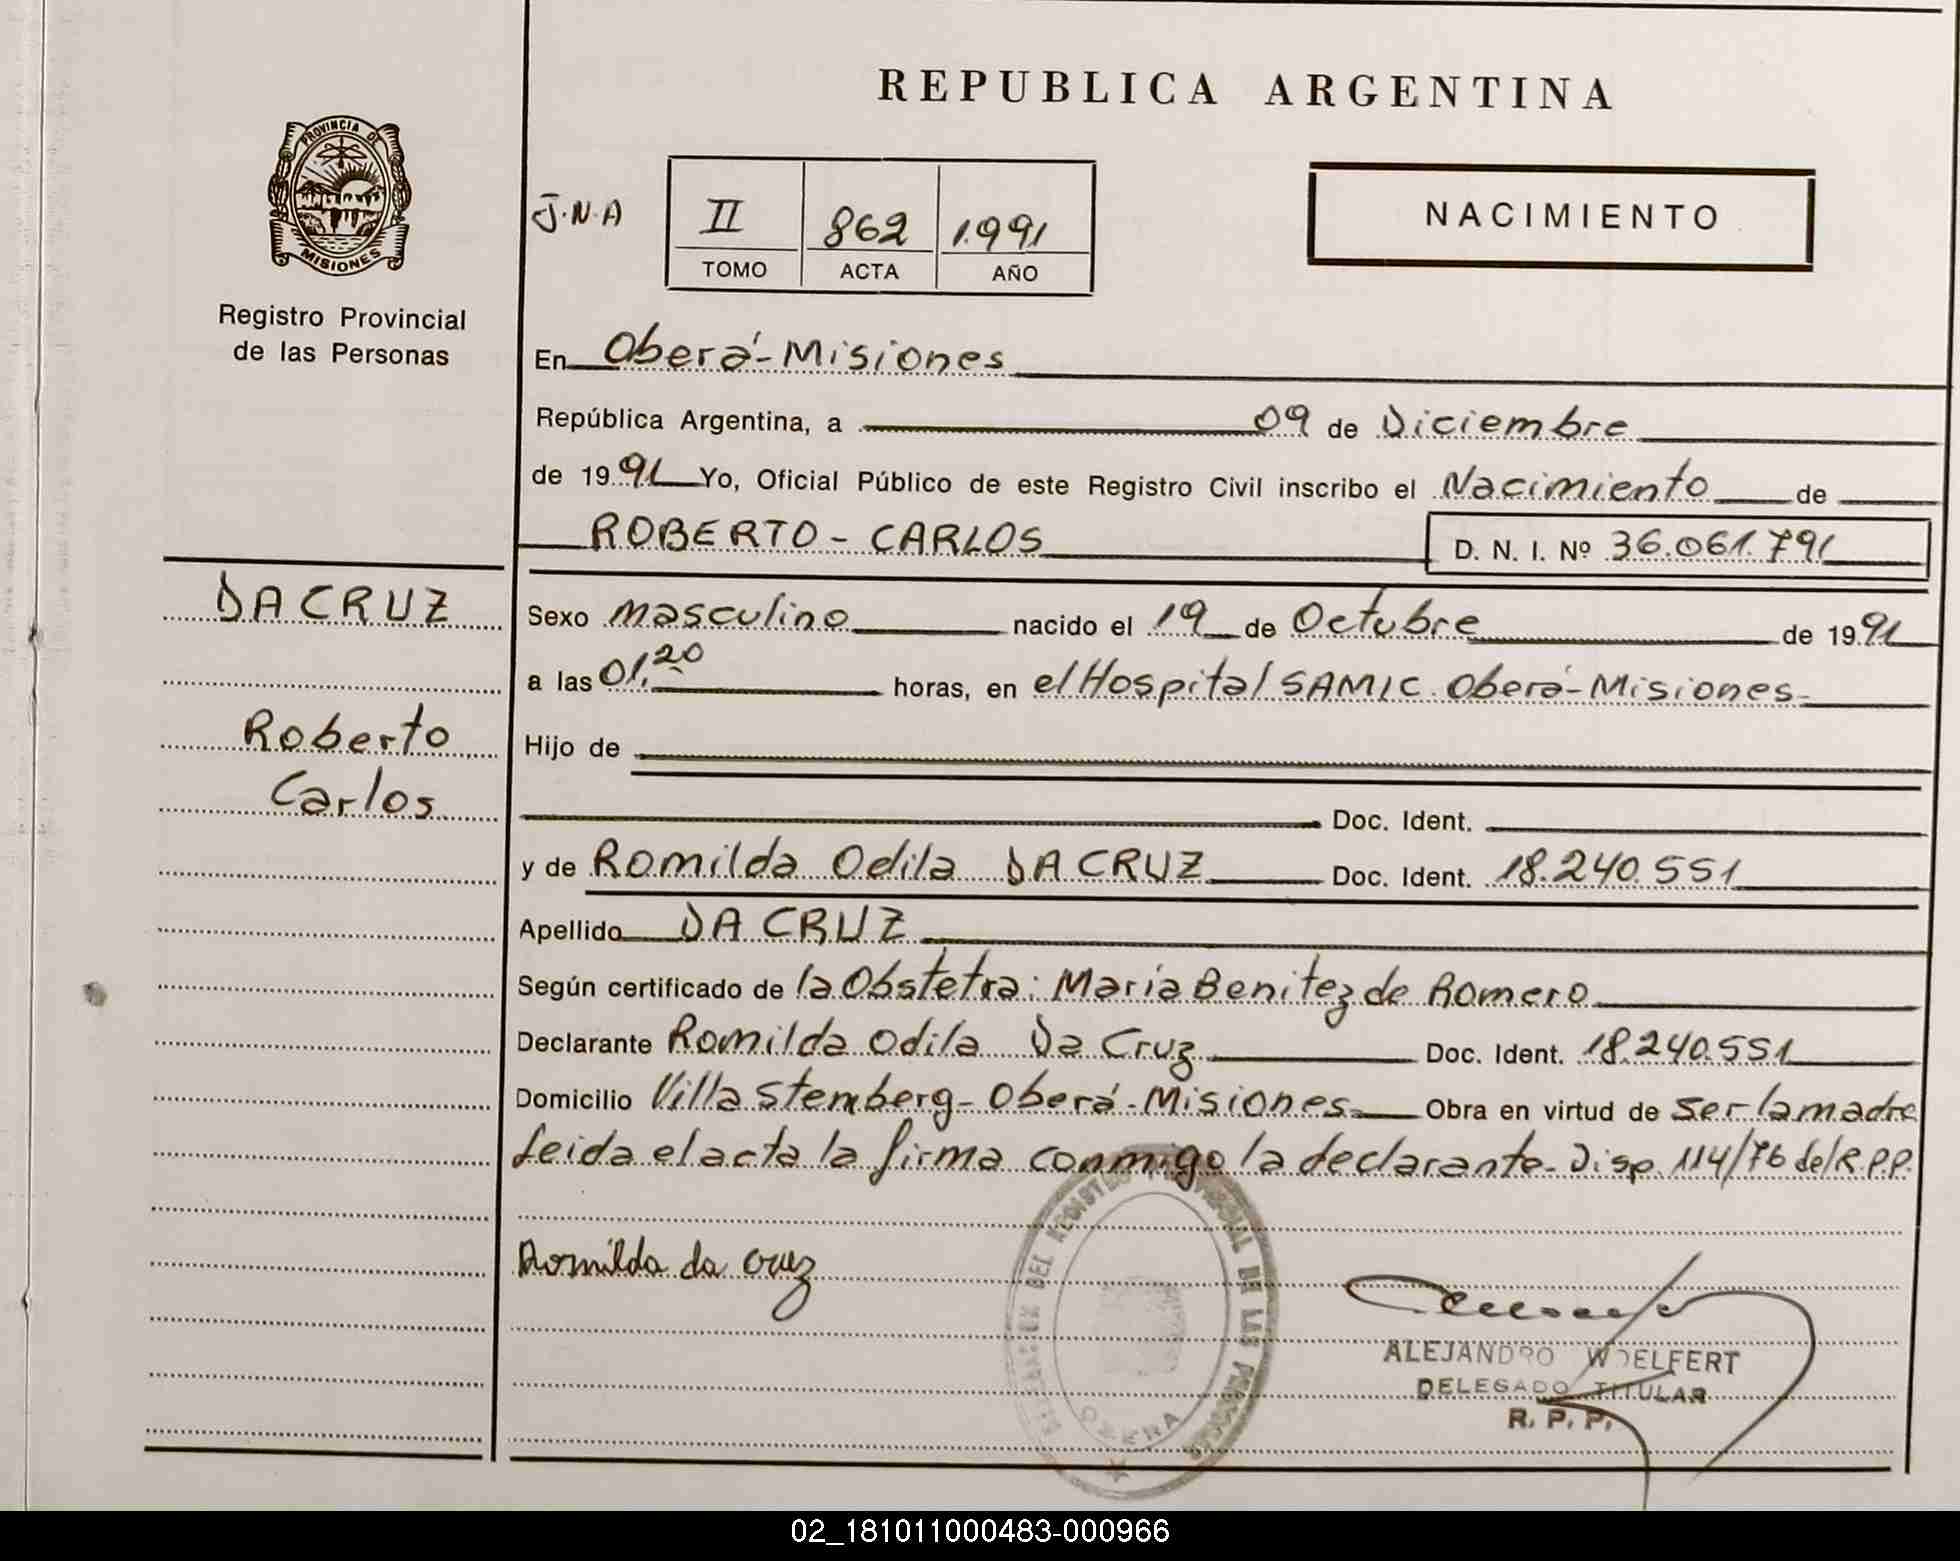 REPUBLICA ARGENTINA
PROVINCIA DE
MISIONES
Registro Provincial
de las Personas
J.N.A
II 862 1.991
TOMO ACTA AÑO
NACIMIENTO
En Oberá-Misiones
República Argentina, a 09 de Diciembre
de 1991 Yo, Oficial Público de este Registro Civil inscribo el Nacimiento de
ROBERTO-CARLOS D. N. I. Nº 36.061.791
DA CRUZ
Roberto
Carlos
Sexo masculino nacido el 19 de Octubre de 1991
a las 01.20 horas, en el Hospital SAMIC. Oberá-Misiones
Hijo de
Doc. Ident.
y de Romilda Odila DA CRUZ Doc. Ident. 18.240.551
Apellido DA CRUZ
Según certificado de la Obstetra: María Benitez de Romero
Declarante Romilda Odila Da Cruz Doc. Ident. 18.240.551
Domicilio Villa Stemberg-Oberá-Misiones Obra en virtud de ser la madre
Leida el acta la firma conmigo la declarante-Disp. 114/76 del R.P.P.
Romilda da cruz
DEL REGISTRO PROVINCIAL DE LAS PERSONAS
ALEJANDRO WOELFERT
DELEGADO TITULAR
R. P. P.
02_181011000483-000966